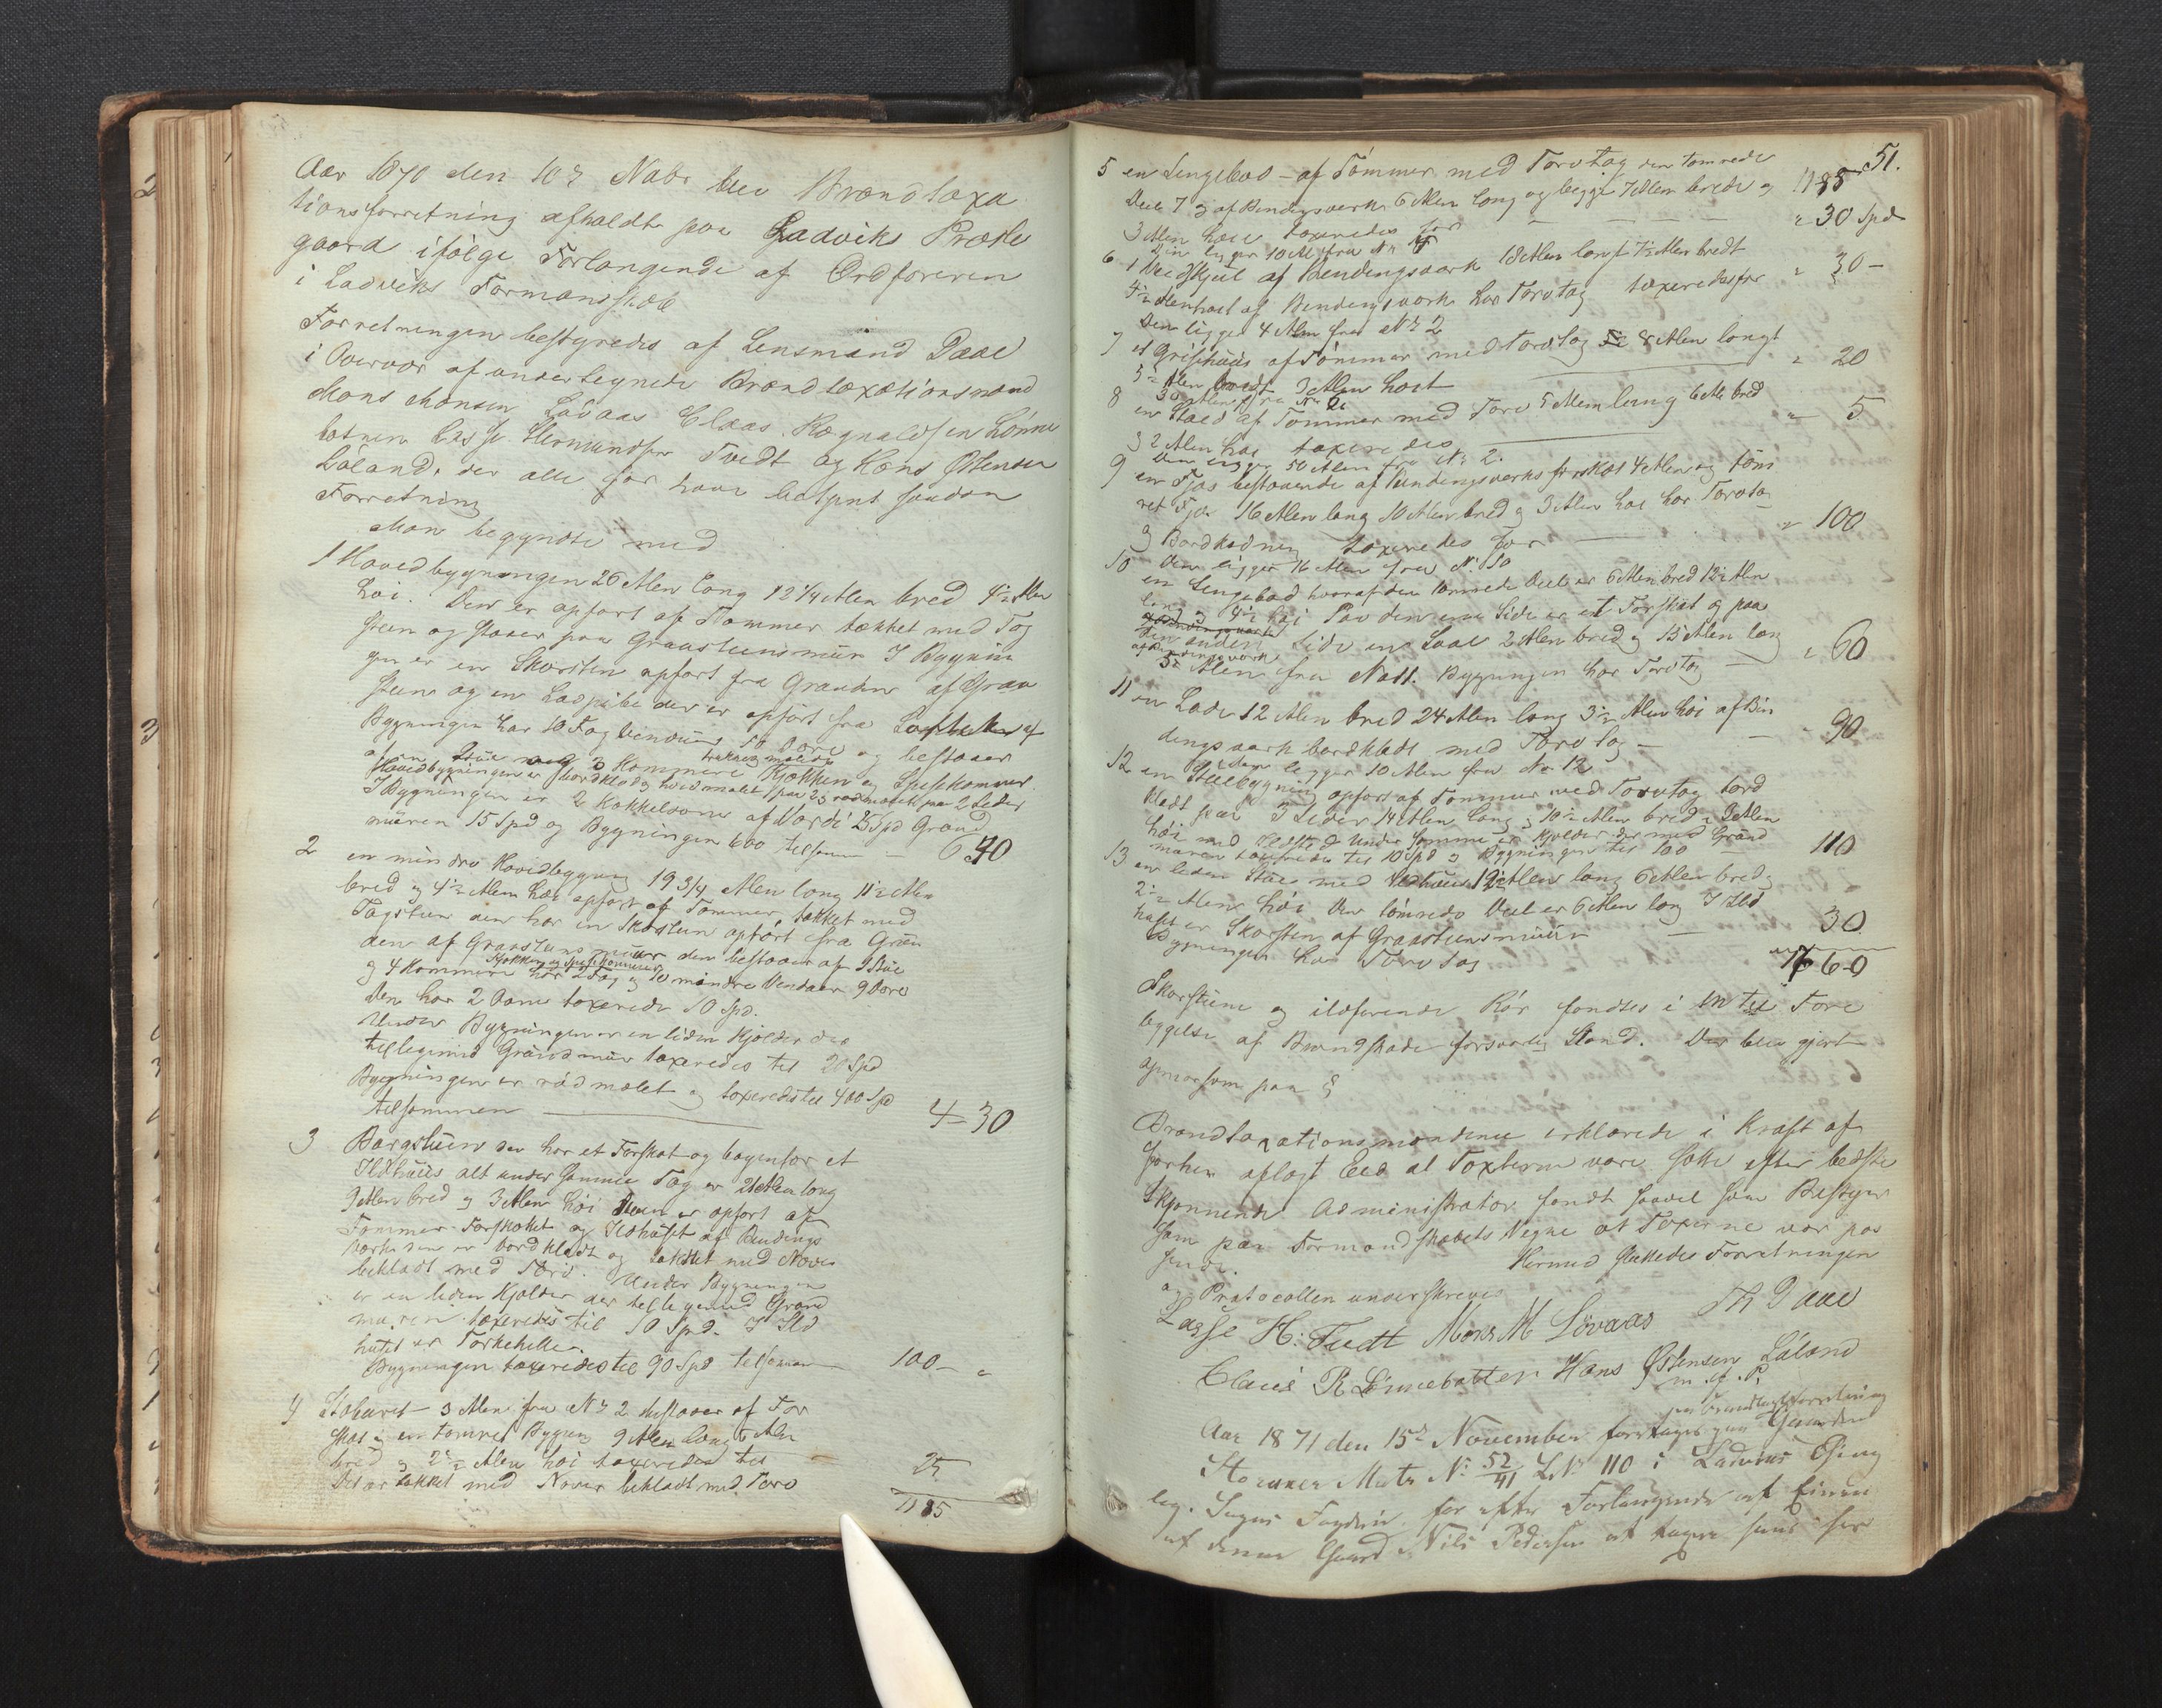 Aar 1870 den 10de Nvbr blev Brandtaxa
tionsforretning afholdt paa Ladviks Præste
gaard ifølge Forlangende af Ordføreren
i Ladviks Formandskab
Forretningen bestyredes af Lensmand Daae
i Overvær af undertegnede Brandtaxationsmænd
Mons Monsen Lövaas Claus Ragnaldsen Lönne
botnen Lasse Hermundsen Tvedt og Hans Østensen
Låland, der alle før have betjent saadan
Forretning
Man begyndte med
1 Hovedbygningen 26 Alen lang 12 1/4 Alen bred 4½ Alen
høi. Den er opført af Tømmer tækket med Tag
steen og staaer paa Graasteensmuur I Bygnin
gen er en Skorsten opført fra Grunden af Graa
steen og en Ladpibe der er opført fra Loftet
Bygningen har 10 Fag Vinduer 10 Døre og bestaaer
af en Stue med 3 Kammere Kjøkken og Spisekammer
Hovedbygningen er bordklædt og hvidmalet paa 2 og rødmalet paa 2 Sider
I Bygningen er 2 Kakkelovne af Værdi 25 Spd Grund
muren 15 Spd og Bygningen 600 tilsammen — 640
2 en mindre Hovedbygning 19 3/4 Alen lang 11½ Alen
bred og 4½ Alen høi opført af Tømmer, tækket med
Tagsteen den har en Skorsteen opført fra Grun
den af Graasteensmuur den bestaaer af 1 Stue
Kjøkken og Spisekammer
og 4 Kammere har 2 Fag og 10 mindre Venduer 9 Døre
Den har 2 Ovne taxerede 10 Spd.
Under Bygningen er en liden Kjælder der
tilligemed Grundmuur taxeredes til 20 Spd
Bygningen er rødmalet og taxeredes til 400 Spd
tilsammen — 430
3 Borgstuen der har et Forskot og bagenfor et
Ildhuus alt under samme Tag er 21 Alen lang
9 Alen bred og 3 Alen høi Den er opført af
Tømmer. Forskotet og Ildhuset af Bindings
værk den er bordklædt og tækket med Næver
beklædt med Torv. Under Bygningen
er en liden Kjælder der tilligemed Grund
muren taxeredes til 10 Spd. I Ild
huset er Tørkehelle.
Bygningen taxeredes til 90 Spd tilsammen — 100 - "
4 Stoburet 3 Alen fra No 2 bestaaer af For
skot og en tømret Bygning 9 Alen lang 6 Alen
bred og 2½ Alen høi taxeredes til — 25
Det er tækket med Næver beklædt med Torv
1185
51.
5 en Lengebod af Tömmer med Torvtag den tømrede 1185
Deel 7 og af Bindingsværk 6 Alen lang og begge 7 Alen brede og
3 Alen høie taxeredes for — " 30 Spd
den ligger 10 Al fra No
6 1 Vedskjul af Bendingsværk 18 Alen langt 7½ Alen bredt
4½ Alen høit af Bendingsværk har Torvtag taxeredes for " 30 -
Den ligger 4 Alen fra No 2
7 et Grisehuus af Tømmer med Torvtag 8 Alen langt
5½ Alen bredt 3 Alen høit — " 20
30 Alen fra No
8 en Stald af Tømmer med Torv 5 Alen lang 6 Al bred
og 2 Alen høi taxeredes — " 5
Den ligger 50 Alen fra No 2.
9 en Fjøs bestaaende af Bindingsværks forskot 4 Alen og tøm
ret Fjøs 16 Alen lang 10 Alen bred og 3 Alen høi har Torvtag
og Bordkledning taxeredes for — " 100
Den ligger 16 Alen fra No 10
10 en Lengebod hvoraf den tømrede Deel er 6 Alen bred 12½ Alen
lang og 4½ høi Paa den ene Side er et Forskot og paa
den anden Side en Sval 2 Alen bred og 15 Alen lang
af Bindingsværk — " 60
5½ Alen fra No 11. Bygningen har Torvtag
11 en Lade 12 Alen bred 24 Alen lang 3½ Alen høi af Bin
dingsværk bordklædt med Torvtag — 90
Den ligger 10 Alen fra No 12
12 en Steebygning opført af Tømmer med Torvtag bord
klædt paa 3 Sider 14 Alen lang og 10½ Alen bred og 3 Alen
høi med Under samme er Kjælder der med Grund
muren taxeredes til 10 Spd og Bygningen til 100 — 110
13 en liden Stue med Vedhuus 12 Alen lang 6 Alen bred og
2½ Alen høi Den tømrede Deel er 6 Alen lang I Ild
huset er Skorsten af Graasteensmuur — 30
Bygningen har Torvtag
1660
Skorstene og ildførende Rör fandtes i en til Fore
byggelse af Brandskade forsvarlig Stand. Der blev gjort
opmærksom paa §
Brandtaxationsmændene erklærede i Kraft af
forhen aflagt Eed at Taxterne vare satte efter bedste
Skjønnende Administrator fandt saavel som Bestyrer
som paa Formandskabets Vegne at Taxterne var pas
sende. Hermed sluttedes Forretningen
og Protocollen underskreves
Th Daae
Lasse H: Tvedt Mons M Lövaas
Claus R Lönnebotten Hans Østensen Låland
m. f. P.
Aar 1871 den 15de November foretages paa Gaarden
Storaker Matr No 52/41 LNo 110 i Ladviks Thing
lag. Sogns Fogderi. for efter Forlangende af Eieren
af denne Gaard Nils Pedersen at taxere hans for